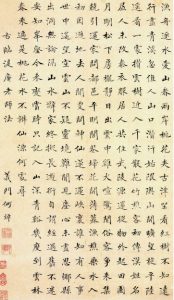 漁舟逐水愛山春兩岸桃花夾古津坐看紅樹不知遠
行盡青溪忽值人山口潛行始隈隩山開曠望旋平陸
遙看一處攢雲樹近入千家散花竹樵客初傳漢姓名
居人未改秦衣服居人共住武陵源還從物外起田園
月明松下房櫳靜日出雲中雞犬喧驚聞俗客爭來集
競引還家問都邑平明閭巷掃花開薄暮漁樵乘水入
初因避地去人間更問神仙遂不還峽裏誰知有人事
世中遙望空雲山不疑靈境難聞見塵心未盡思鄉縣
出洞無論隔山水辭家終擬長游衍自謂經過舊不迷
安知峰壑今來變當時只記入山深青谿幾度到雲林
春來遍是桃花水不辨仙源何處尋
老師法
義門何焯